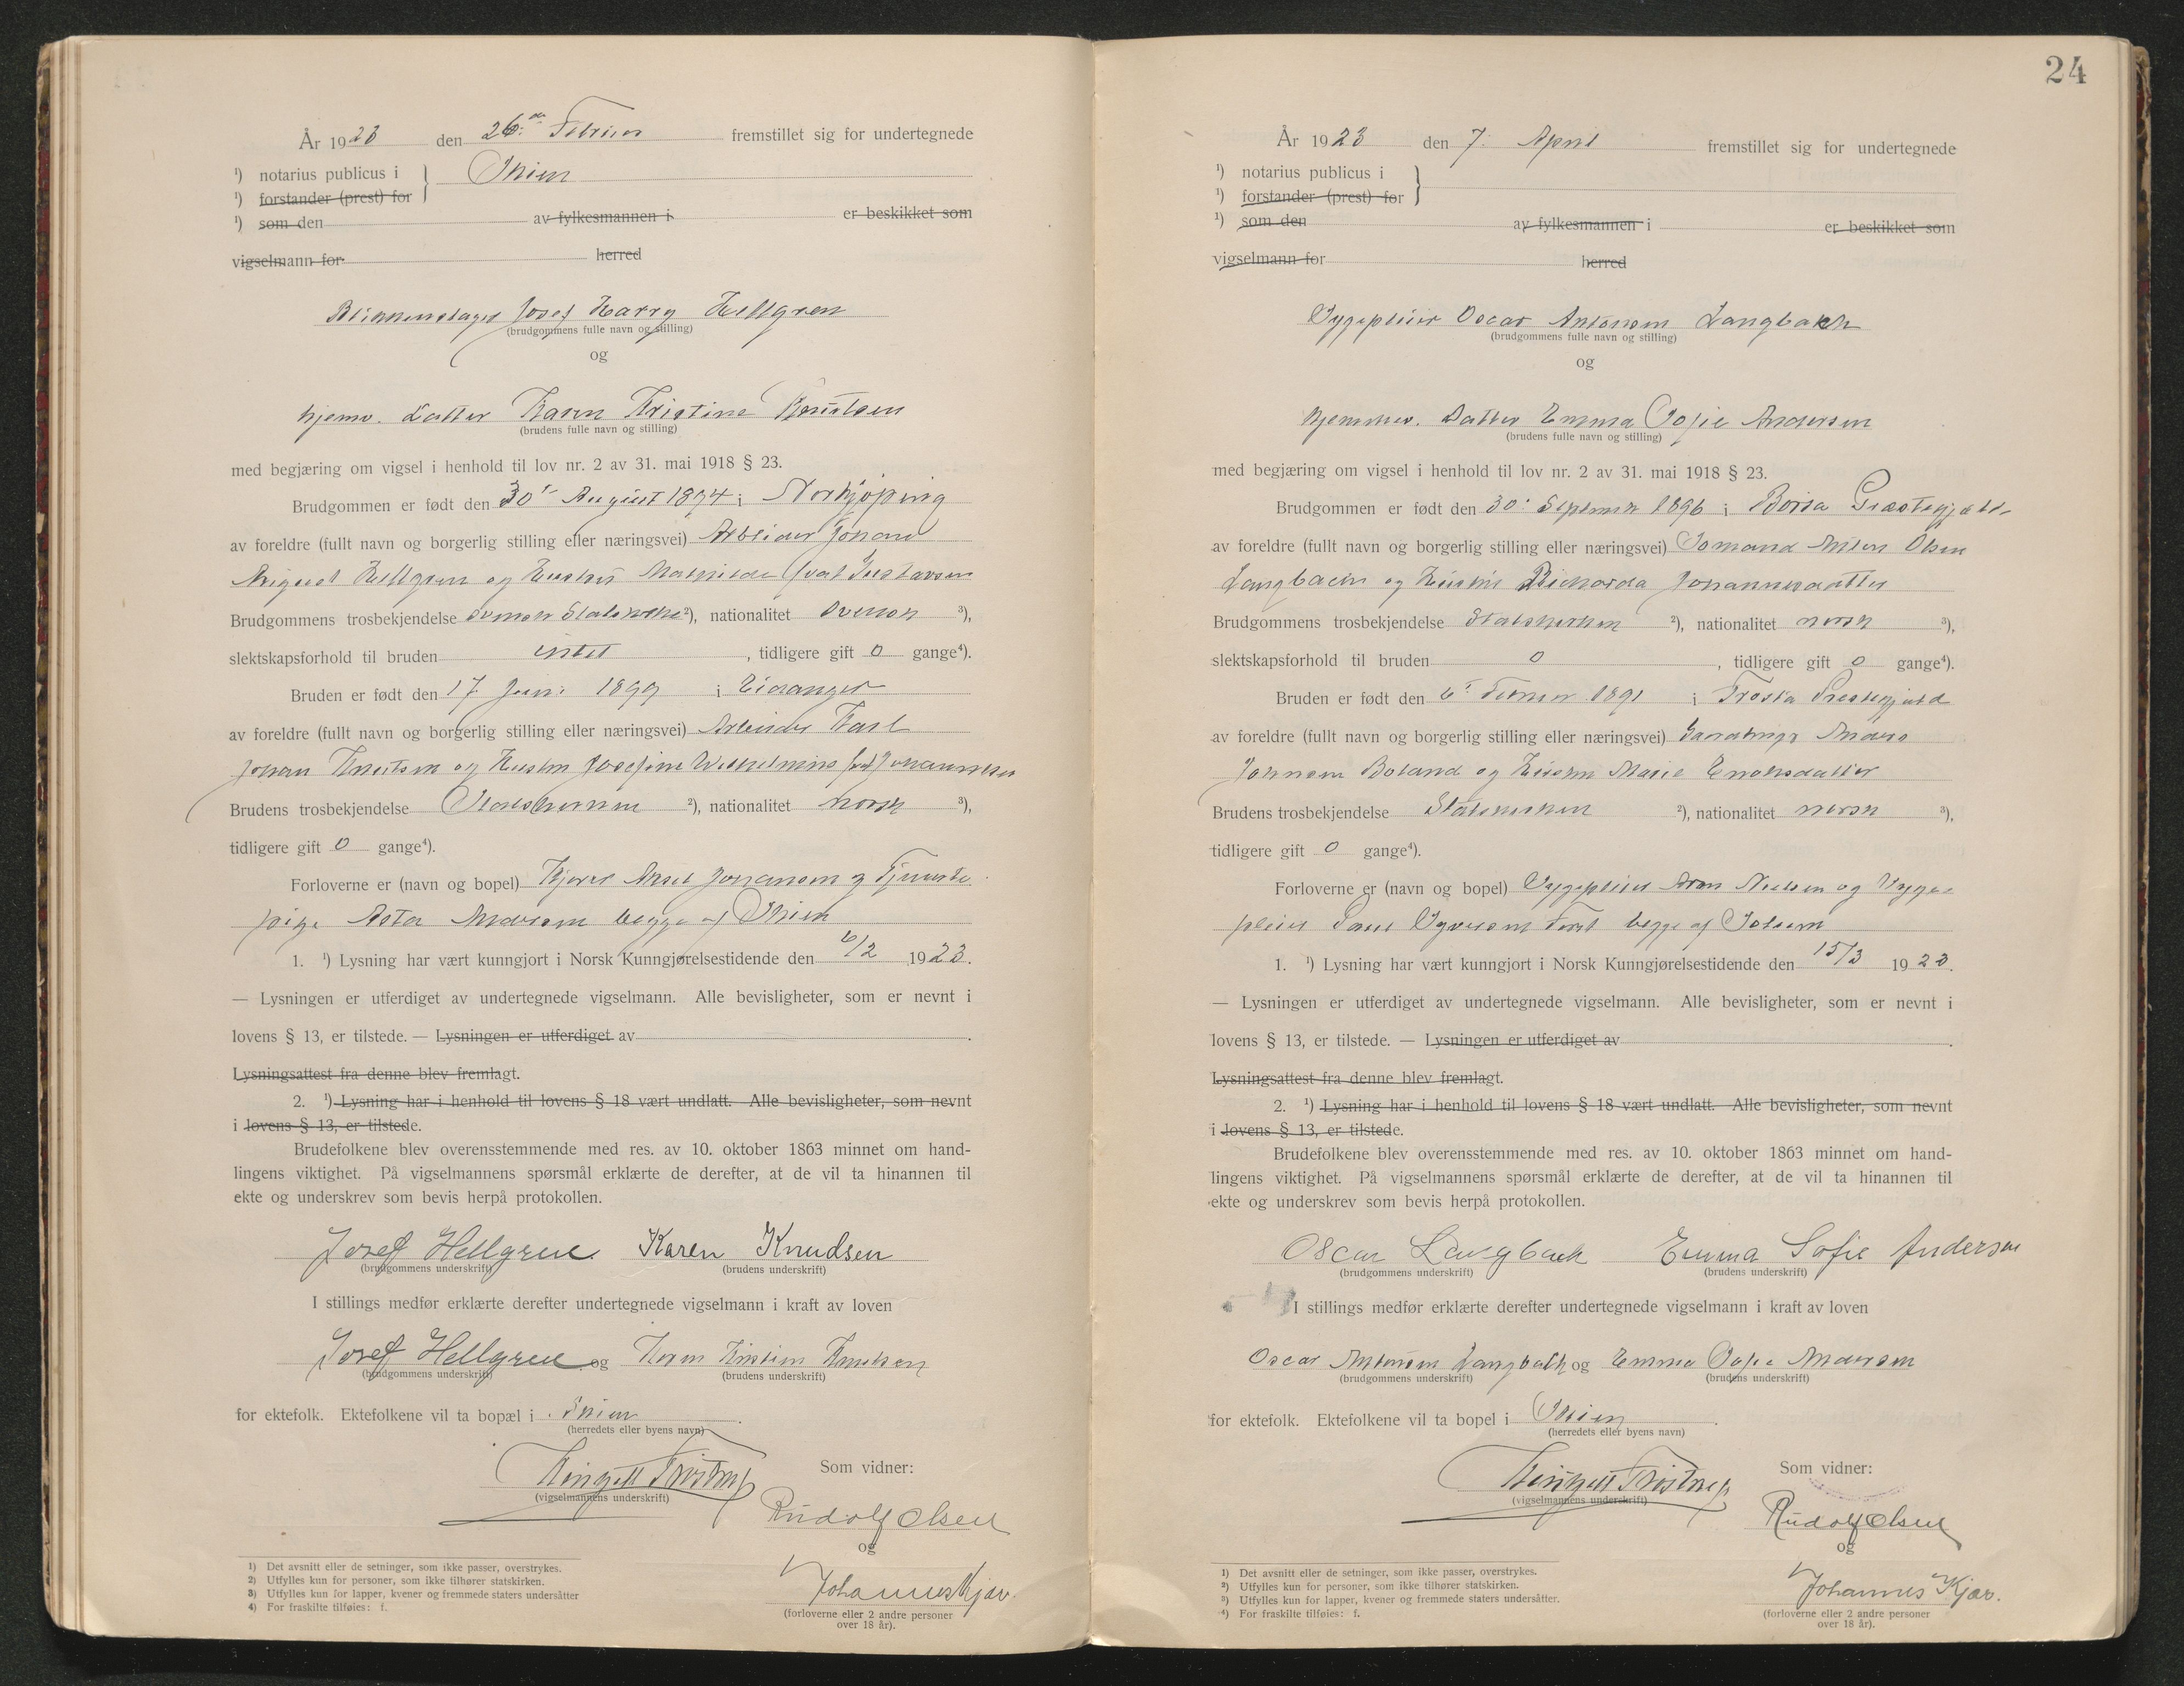 År 1923 den 26de Februar fremstillet sig for undertegnede
¹) notarius publicus i Skien
¹) forstander (prest) for
¹) som den av fylkesmannen i er beskikket som
vigselmann for herred
Blikkenslager Josef Harry Hellgren
(brudgommens fulle navn og stilling)
og
hjemv. Datter Karen Kristine Knutsen
(brudens fulle navn og stilling)
med begjæring om vigsel i henhold til lov nr. 2 av 31. mai 1918 § 23.
Brudgommen er født den 30. August 1894 i Norkjöping
av foreldre (fullt navn og borgerlig stilling eller næringsvei) Arbeider Johan
August Hellgren og Hustru Mathilde født Gustavsen
Brudgommens trosbekjendelse svensk Statskirke ²), nationalitet svensk ³),
slektskapsforhold til bruden intet, tidligere gift 0 gange⁴).
Bruden er født den 17. Juni 1899 i Eidanger
av foreldre (fullt navn og borgerlig stilling eller næringsvei) Arbeider Karl
Johan Knutsen og Hustru Josefine Wilhelmine født Johannesen
Brudens trosbekjendelse Statskirken ²), nationalitet norsk ³),
tidligere gift 0 gange⁴).
Forloverne er (navn og bopel) Aksel Johansen og Tjeneste
pige Asta Andersen begge af Skien
1. ¹) Lysning har vært kunngjort i Norsk Kunngjørelsestidende den 6/2 1923.
— Lysningen er utferdiget av undertegnede vigselmann. Alle bevisligheter, som er nevnt i
lovens § 13, er tilstede. — Lysningen er utferdiget av
Lysningsattest fra denne blev fremlagt.
2. ¹) Lysning har i henhold til lovens § 18 vært undlatt. Alle bevisligheter, som nevnt
i lovens § 13, er tilstede.
Brudefolkene blev overensstemmende med res. av 10. oktober 1863 minnet om hand-
lingens viktighet. På vigselmannens spørsmål erklærte de derefter, at de vil ta hinannen til
ekte og underskrev som bevis herpå protokollen.
Josef Hellgren. Karen Knudsen
(brudgommens underskrift) (brudens underskrift)
I stillings medfør erklærte derefter undertegnede vigselmann i kraft av loven
Josef Hellgren og Karen Kristine Knutsen
(brudgommens underskrift) (brudens underskrift)
for ektefolk. Ektefolkene vil ta bopæl i Skien.
(herredets eller byens navn)
Som vidner:
(vigselmannens underskrift)
Rudolf Olsen
og
Johannes Kjær.
(forloverne eller 2 andre personer
over 18 år).
1) Det avsnitt eller de setninger, som ikke passer, overstrykes.
2) Utfylles kun for personer, som ikke tilhører statskirken.
3) Utfylles kun for lapper, kvener og fremmede staters undersåtter
4) For fraskilte tilføies: f.
24
År 1923 den 7. April fremstillet sig for undertegnede
¹) notarius publicus i
¹) forstander (prest) for
¹) som den av fylkesmannen i er beskikket som
vigselmann for herred
Sygepleier Oscar Antonsen Langbakk
(brudgommens fulle navn og stilling)
og
hjemmev. Datter Emma Sofie Andersen
(brudens fulle navn og stilling)
med begjæring om vigsel i henhold til lov nr. 2 av 31. mai 1918 § 23.
Brudgommen er født den 30. September 1896 i Børsa Præstegjæld
av foreldre (fullt navn og borgerlig stilling eller næringsvei) Anton Olsen
og Hustru Johannesdatter
Brudgommens trosbekjendelse Statskirken ²), nationalitet norsk ³),
slektskapsforhold til bruden 0, tidligere gift 0 gange⁴).
Bruden er født den 6. Februar 1891 i Frosta Prestegjæld
av foreldre (fullt navn og borgerlig stilling eller næringsvei) Gaardbruger Anders
Johnsen og Hustru Marie Enoksdatter
Brudens trosbekjendelse Statskirken ²), nationalitet norsk ³),
tidligere gift 0 gange⁴).
Forloverne er (navn og bopel) Sygepleier Nielsen og Sygepleier
begge af
1. ¹) Lysning har vært kunngjort i Norsk Kunngjørelsestidende den 15/3 1923.
— Lysningen er utferdiget av undertegnede vigselmann. Alle bevisligheter, som er nevnt i
lovens § 13, er tilstede. — Lysningen er utferdiget av
Lysningsattest fra denne blev fremlagt.
2. ¹) Lysning har i henhold til lovens § 18 vært undlatt. Alle bevisligheter, som nevnt
i lovens § 13, er tilstede.
Brudefolkene blev overensstemmende med res. av 10. oktober 1863 minnet om hand-
lingens viktighet. På vigselmannens spørsmål erklærte de derefter, at de vil ta hinannen til
ekte og underskrev som bevis herpå protokollen.
Oscar Langbakk Emma Sofie Andersen
(brudgommens underskrift) (brudens underskrift)
I stillings medfør erklærte derefter undertegnede vigselmann i kraft av loven
Oscar Antonsen Langbakk og Emma Sofie Andersen
(brudgommens underskrift) (brudens underskrift)
for ektefolk. Ektefolkene vil ta bopel i Skien.
(herredets eller byens navn)
Som vidner:
(vigselmannens underskrift)
Rudolf Olsen
og
Johannes Kjær.
(forloverne eller 2 andre personer
over 18 år).
1) Det avsnitt eller de setninger, som ikke passer, overstrykes.
2) Utfylles kun for personer, som ikke tilhører statskirken.
3) Utfylles kun for lapper, kvener og fremmede staters undersåtter.
4) For fraskilte tilføies: f.